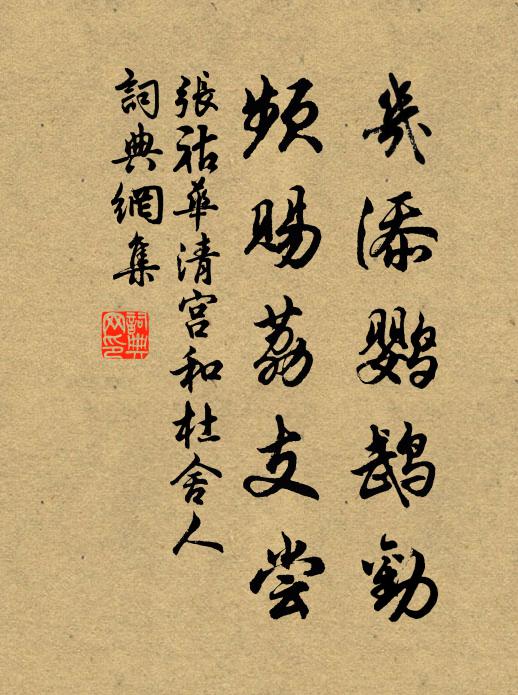 幾添鸚鵡勸
頻賜荔支嘗
張祜華清宮和杜舍人
詞典網集
詞典網印